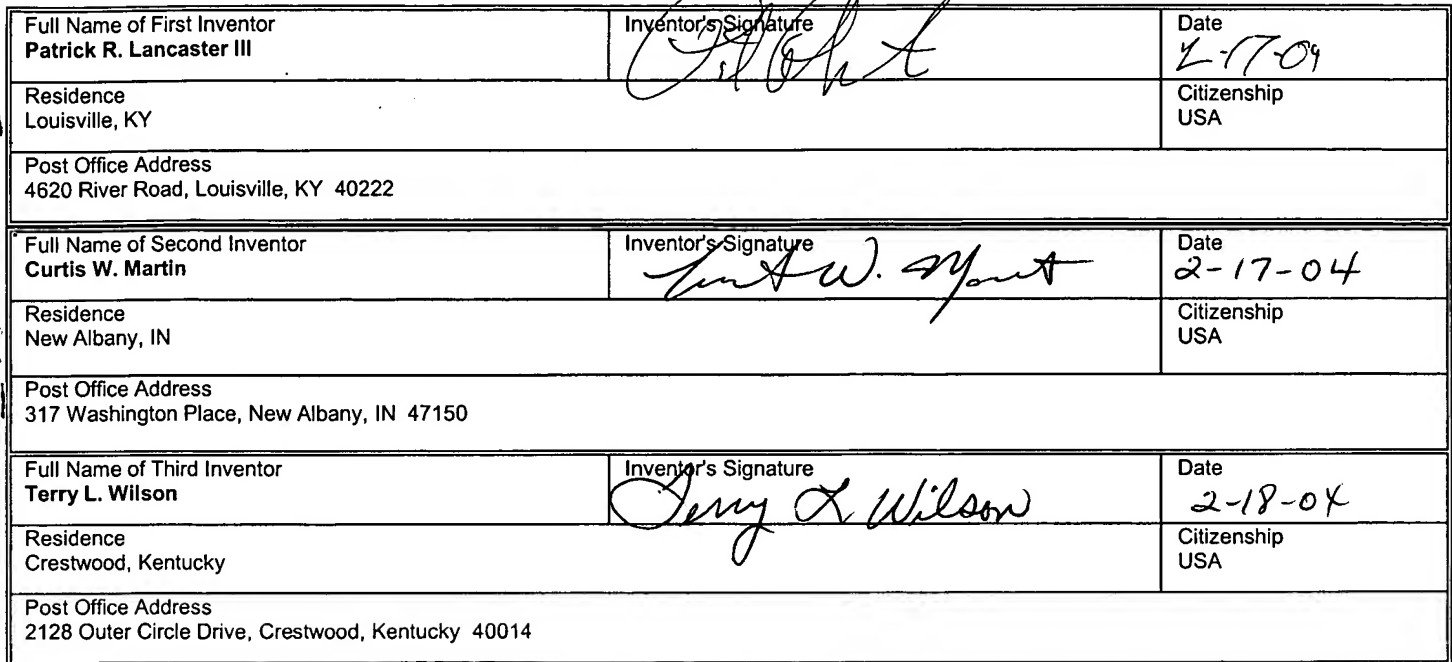 Full Name of First Inventor
Patrick R. Lancaster III
Inventor's Signature
Date
2-17-04
Residence
Louisville, KY
Citizenship
USA
Post Office Address
4620 River Road, Louisville, KY 40222
Full Name of Second Inventor
Curtis W. Martin
Inventor's Signature
Curtis W. Martin
Date
2-17-04
Residence
New Albany, IN
Citizenship
USA
Post Office Address
317 Washington Place, New Albany, IN 47150
Full Name of Third Inventor
Terry L. Wilson
Inventor's Signature
Terry L Wilson
Date
2-18-04
Residence
Crestwood, Kentucky
Citizenship
USA
Post Office Address
2128 Outer Circle Drive, Crestwood, Kentucky 40014